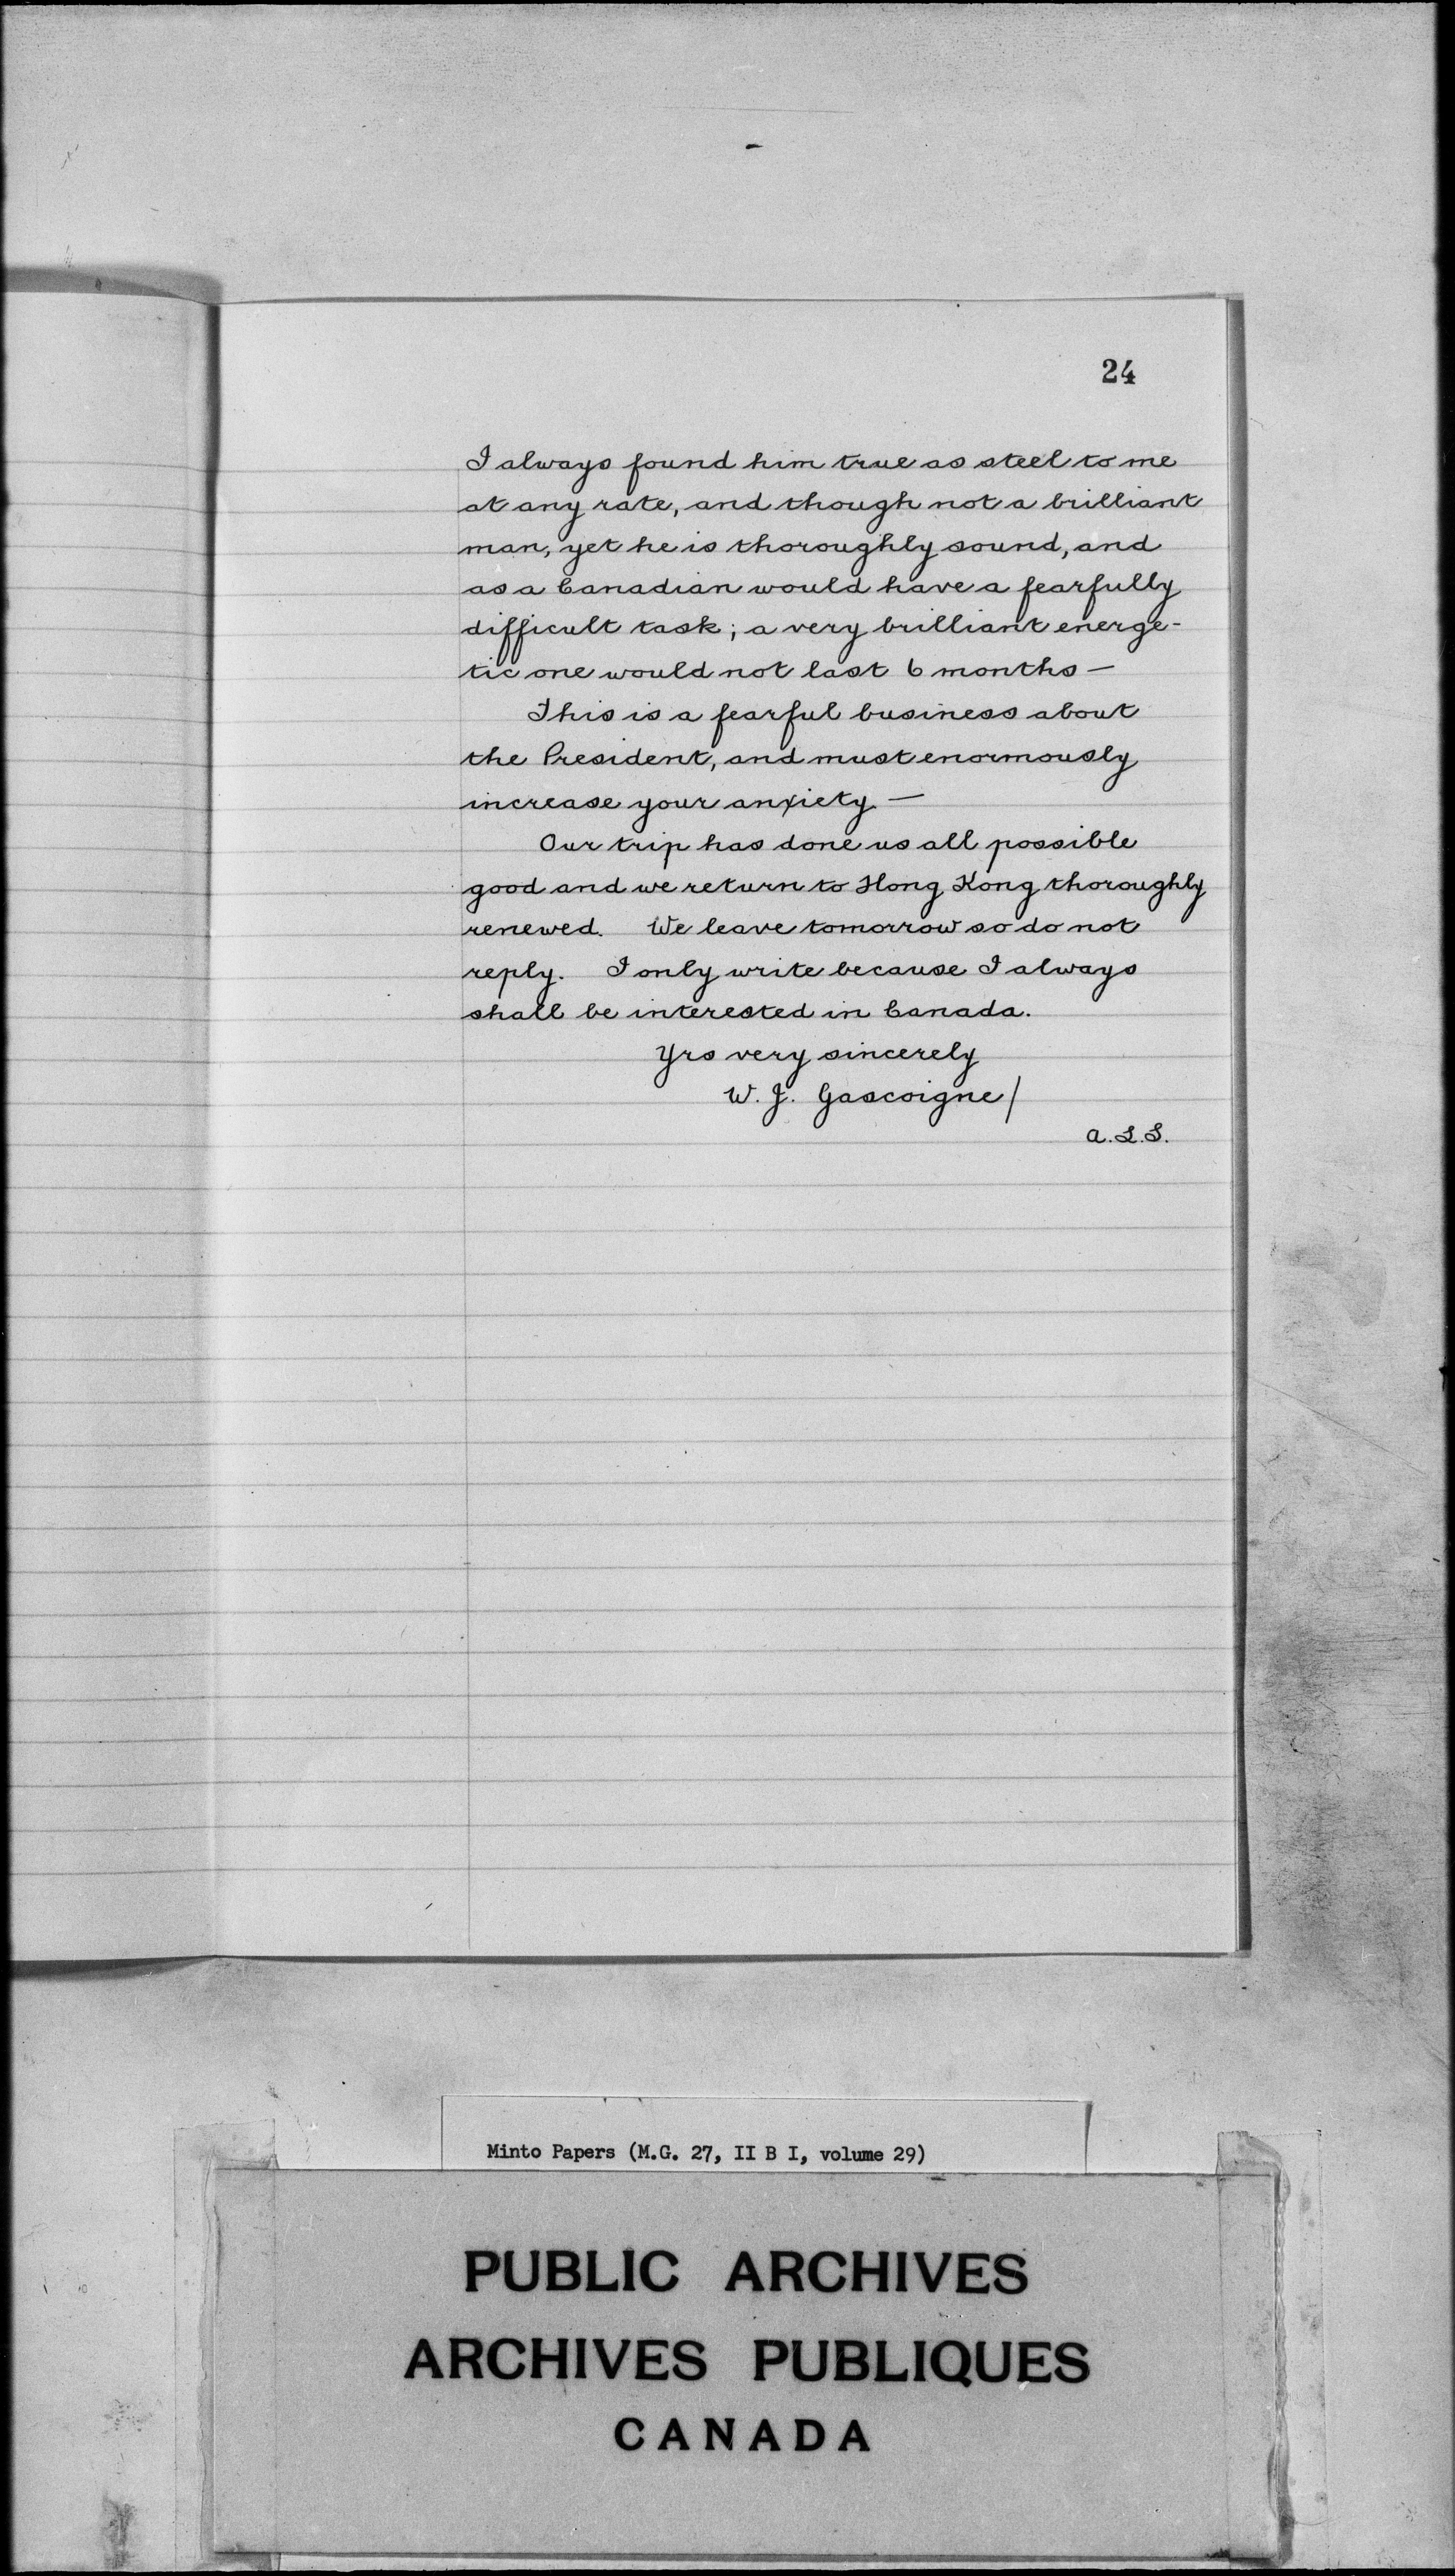 24
I always found him true as steel to me
at any rate, and though not a brilliant
man, yet he is thoroughly sound, and
as a Canadian would have a fearfully
difficult task; a very brilliant energe-
tic one would not last 6 months —
This is a fearful business about
the President, and must enormously
increase your anxiety —
Our trip has done us all possible
good and we return to Hong Kong thoroughly
renewed. We leave tomorrow so do not
reply. I only write because I always
shall be interested in Canada.
Yrs very sincerely
W. J. Gascoigne/
A.L.S.
Minto Papers (M.G. 27, II B I, volume 29)
PUBLIC ARCHIVES
ARCHIVES PUBLIQUES
CANADA